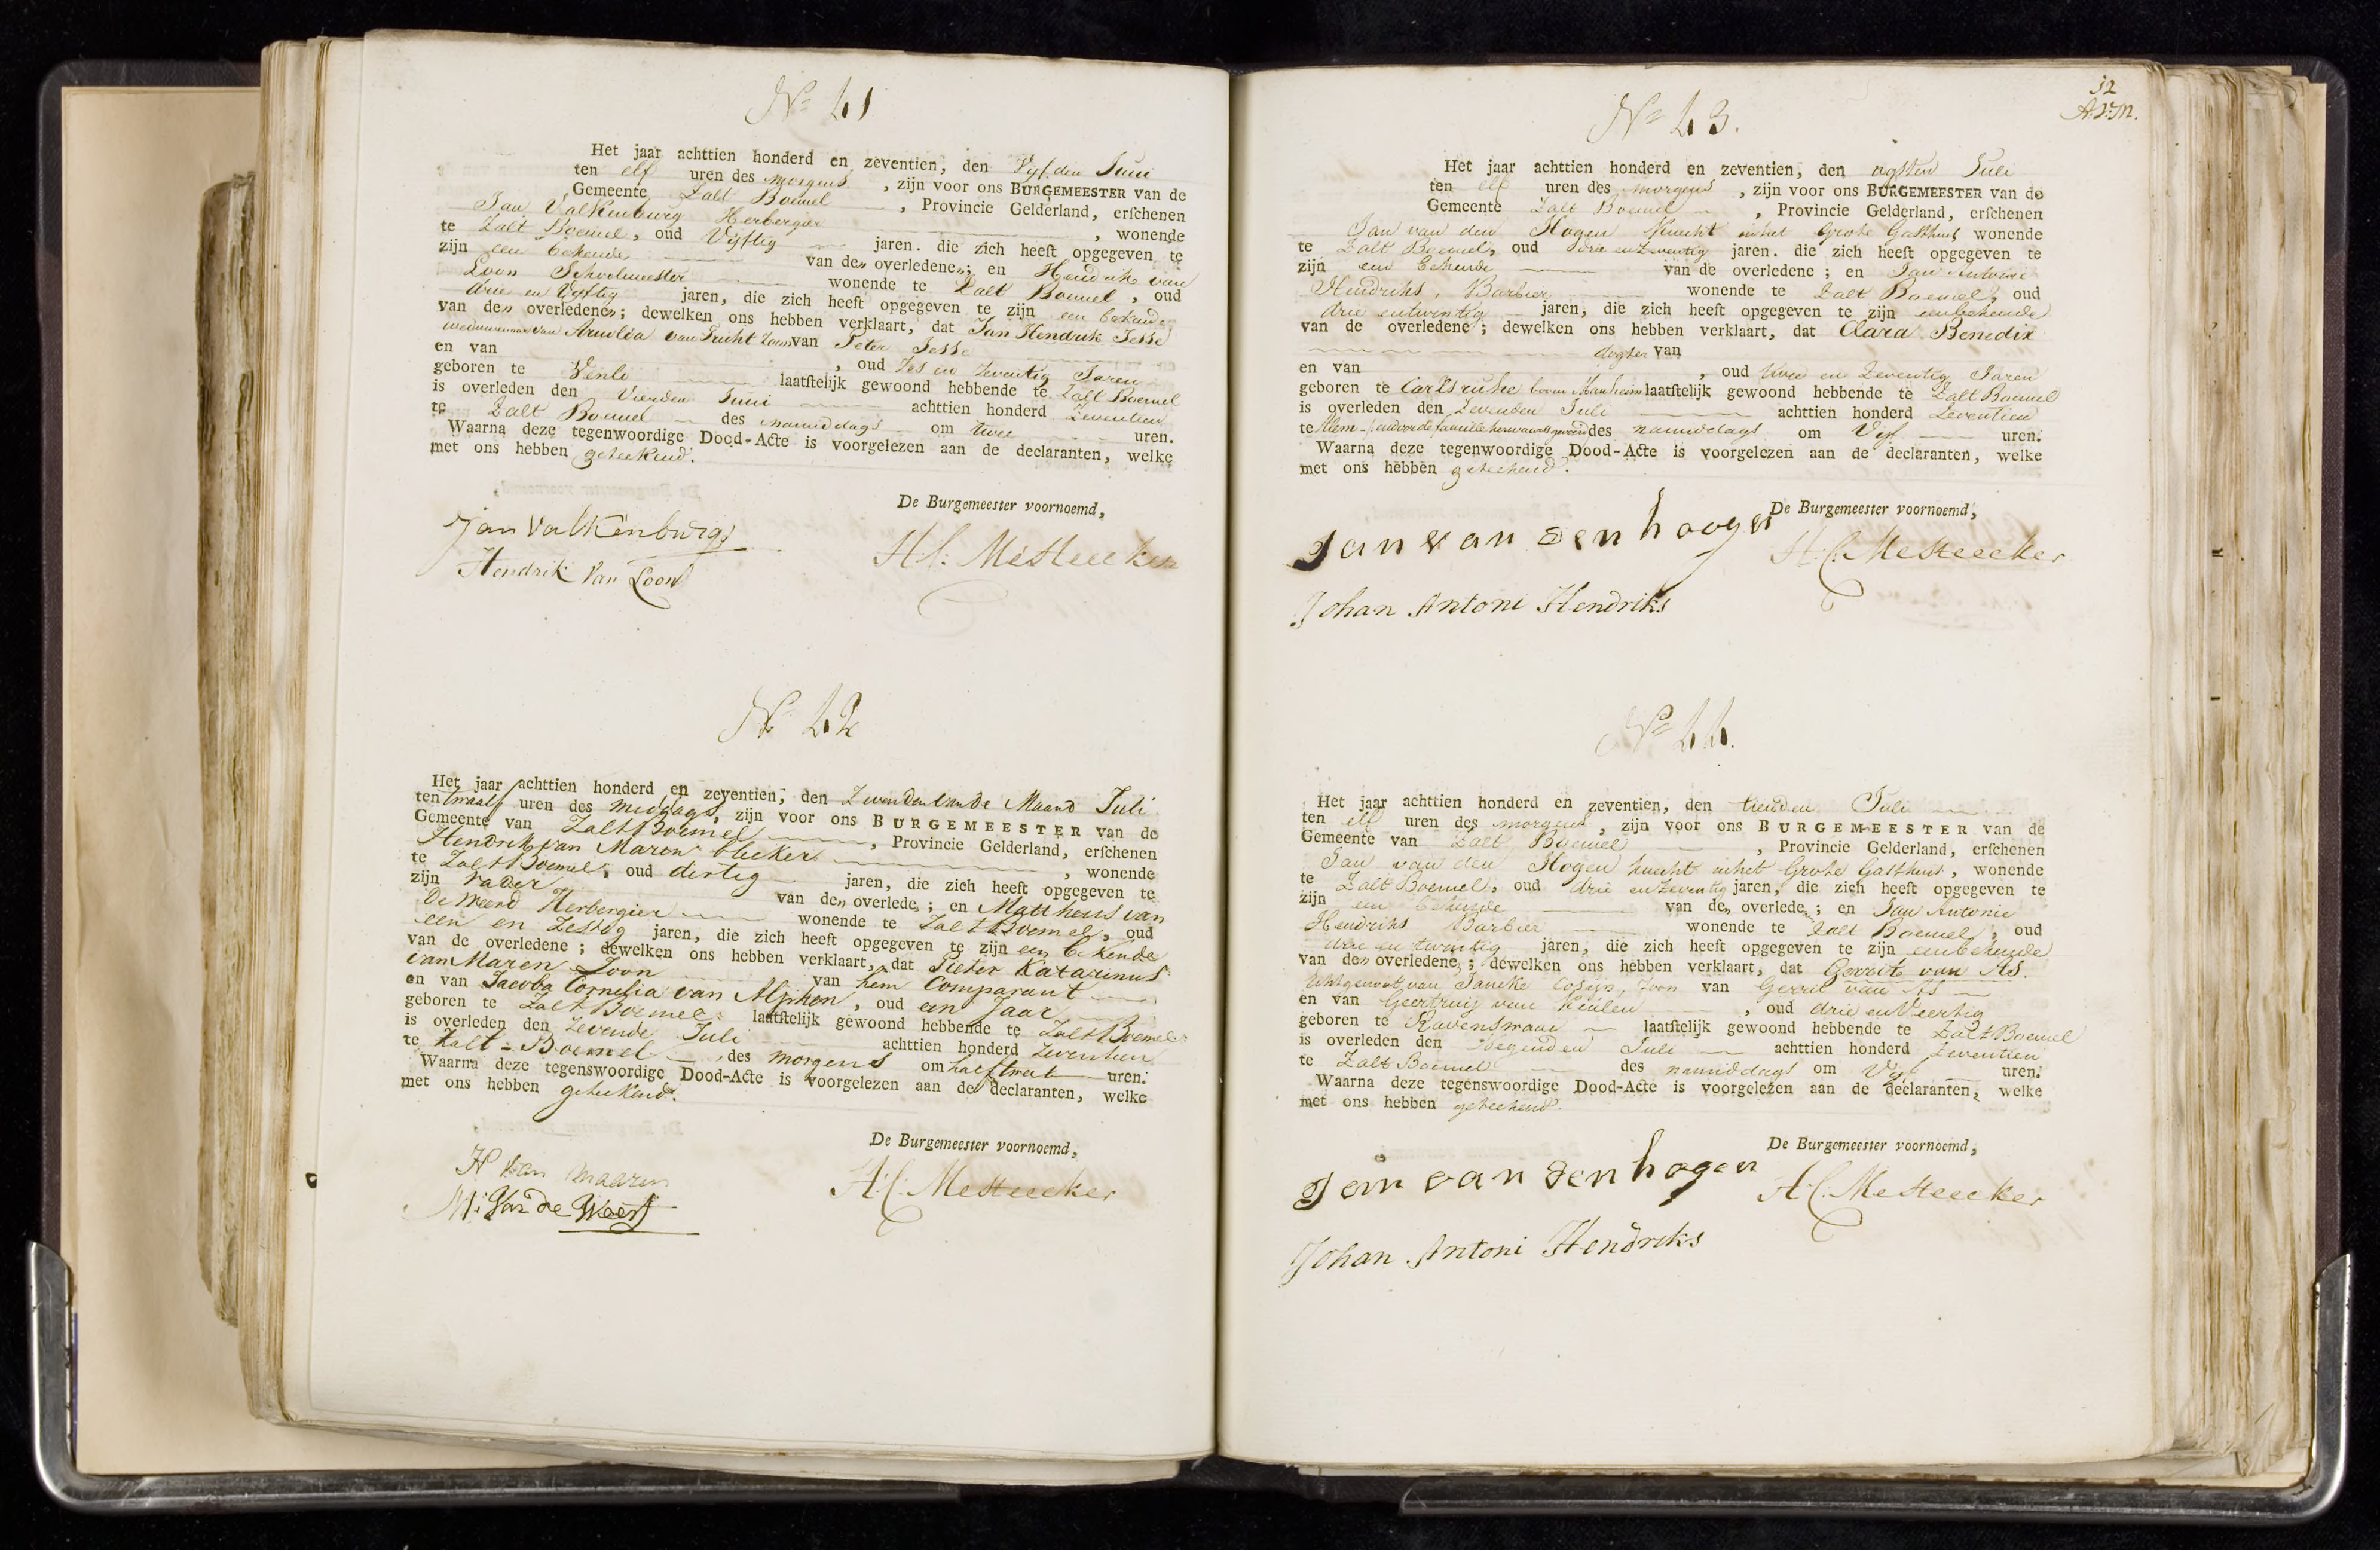 Nº 41
Het jaar achttien honderd en zeventien, den Vyfden Juni
ten elf uren des morgens, zijn voor ons BURGEMEESTER van de
Gemeente Zalt Boemel, Provincie Gelderland, erschenen
Jan Valkenburg Herbergier, wonende
te Zalt Boemel, oud Vyftig jaren. die zich heeft opgegeven te
zijn een bekende van den overledenen; en Hendrik van
Loon Schoolmeester wonende te Zalt Boemel, oud
drie en Vyftig jaren, die zich heeft opgegeven te zijn een bekende
van den overledenen; dewelken ons hebben verklaart, dat Jan Hendrik Jesse
weduwenaar van Arnolda van Tricht Zoon van Peter Jesse
en van, oud Zes en Zeventig Jaren
geboren te Venlo laatstelijk gewoond hebbende te Zalt Boemel
is overleden den Vierden Juni achttien honderd Zeventien
te Zalt Boemel des namiddags om twee uren.
Waarna deze tegenwoordige Dood-Acte is voorgelezen aan de declaranten, welke
met ons hebben geteekend.
De Burgemeester voornoemd,
Jan Valkenburg
H.C. Mesteecker
Hendrik Van Loon
Nº 42
Het jaar achttien honderd en zeventien, den Zevenden van de Maand Juli
ten twaalf uren des middags, zijn voor ons BURGEMEESTER van de
Gemeente van Zalt Boemel, Provincie Gelderland, erschenen
Hendrik van Maren bleker, wonende
te Zalt Boemel, oud dertig jaren, die zich heeft opgegeven te
zijn vader van den overlede; en Mattheus van
De Weerd Herbergier wonende te Zalt Boemel, oud
een en Zestig jaren, die zich heeft opgegeven te zijn een bekende
van de overledene; dewelken ons hebben verklaart, dat Pieter Katarinus
van Maren Zoon van hem Comparant
en van Jacoba Cornelia van Alphen, oud een Jaar
geboren te Zalt Boemel laatstelijk gewoond hebbende te Zalt Boemel
is overleden den Zevende Juli achttien honderd Zeventien
te Zalt-Boemel des morgens om half twee uren.
Waarna deze tegenswoordige Dood-Acte is voorgelezen aan de declaranten, welke
met ons hebben geteekend.
De Burgemeester voornoemd,
H van Maaren
H.C. Mesteecker
M: Van de Weert
52
Nº 43.
Het jaar achttien honderd en zeventien, den agsten Juli
ten elf uren des morgens, zijn voor ons BURGEMEESTER van de
Gemeente Zalt Boemel, Provincie Gelderland, erschenen
Jan van den Hogen knecht in het Grote Gasthuis wonende
te Zalt Boemel, oud drie en Zeventig jaren. die zich heeft opgegeven te
zijn een bekende van de overledene; en Jan Antonie
Hendriks, Barbier wonende te Zalt Boemel, oud
drie entwintig jaren, die zich heeft opgegeven te zijn een bekende
van de overledene; dewelken ons hebben verklaart, dat Clara Benedix
dogter van
en van, oud twee en Zeventig Jaren
geboren te Carlsruhe boven Manheim laatstelijk gewoond hebbende te Zalt Boemel
is overleden den Zevenden Juli achttien honderd Zeventien
te des namiddags om Vyf uren.
Waarna deze tegenwoordige Dood-Acte is voorgelezen aan de declaranten, welke
met ons hebben geteekend.
De Burgemeester voornoemd,
Jan van den hoogen
H.C. Mesteecker
Johan Antoni Hendriks
Nº 44.
Het jaar achttien honderd en zeventien, den tienden Juli
ten elf uren des morgens, zijn voor ons BURGEMEESTER van de
Gemeente van Zalt Boemel, Provincie Gelderland, erschenen
Jan van den Hogen knecht in het Grote Gasthuis, wonende
te Zalt Boemel, oud drie en Zeventig jaren, die zich heeft opgegeven te
zijn een bekende van den overlede; en Jan Antonie
Hendriks Barbier wonende te Zalt Boemel, oud
drie en twintig jaren, die zich heeft opgegeven te zijn een bekende
van den overledene; dewelken ons hebben verklaart, dat Gerrit van As
Echtgenoot van Janeke Cosijn, Zoon van Gerrit van As
en van Geertruij van Keulen, oud drie en Veertig
geboren te Ravenswaai laatstelijk gewoond hebbende te Zalt Boemel
is overleden den Negenden Juli achttien honderd Zeventien
te Zalt Boemel des namiddags om Vyf uren.
Waarna deze tegenswoordige Dood-Acte is voorgelezen aan de declaranten, welke
met ons hebben geteekend.
De Burgemeester voornoemd,
Jan van den hogen
H.C. Mesteecker
Johan Antoni Hendreks